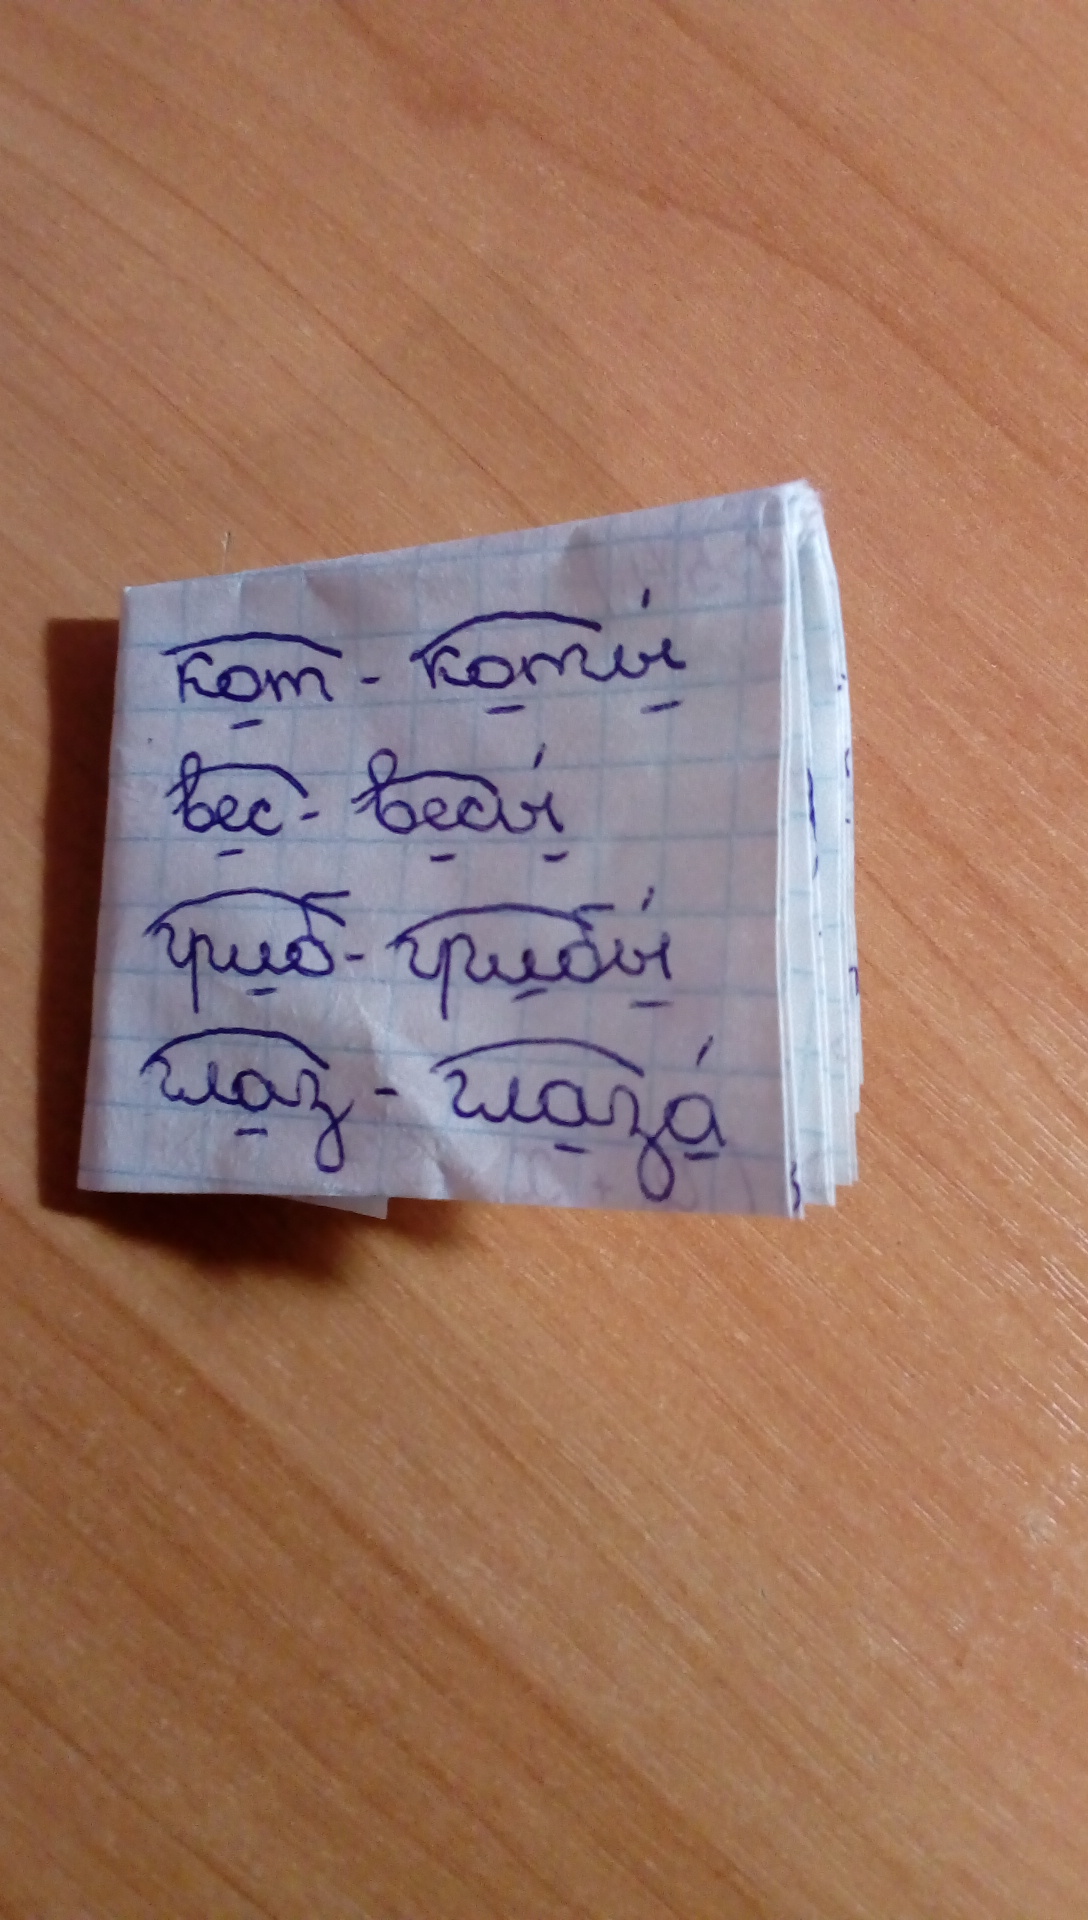 кот - коты́
вес - весы́
гриб - грибы́
глаз - глаза́